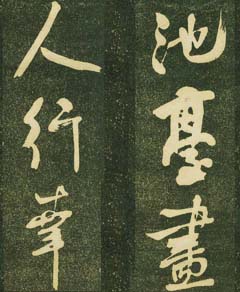 池臺畫
人行華